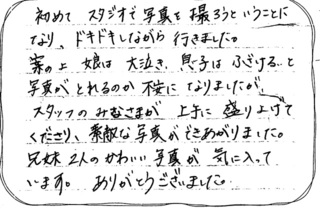 初めて スタジオで写真を撮ろうということに
なり、ドキドキしながら 行きました。
案の上 娘は 大泣き、息子は ふざける…と
写真がとれるのか 不安に なりましたが、
スタッフの みなさまが 上手に 盛り上げて
くださり、素敵な写真ができあがりました。
兄妹 2人のかわいい 写真が 気に入って
います。 ありがとうございました。